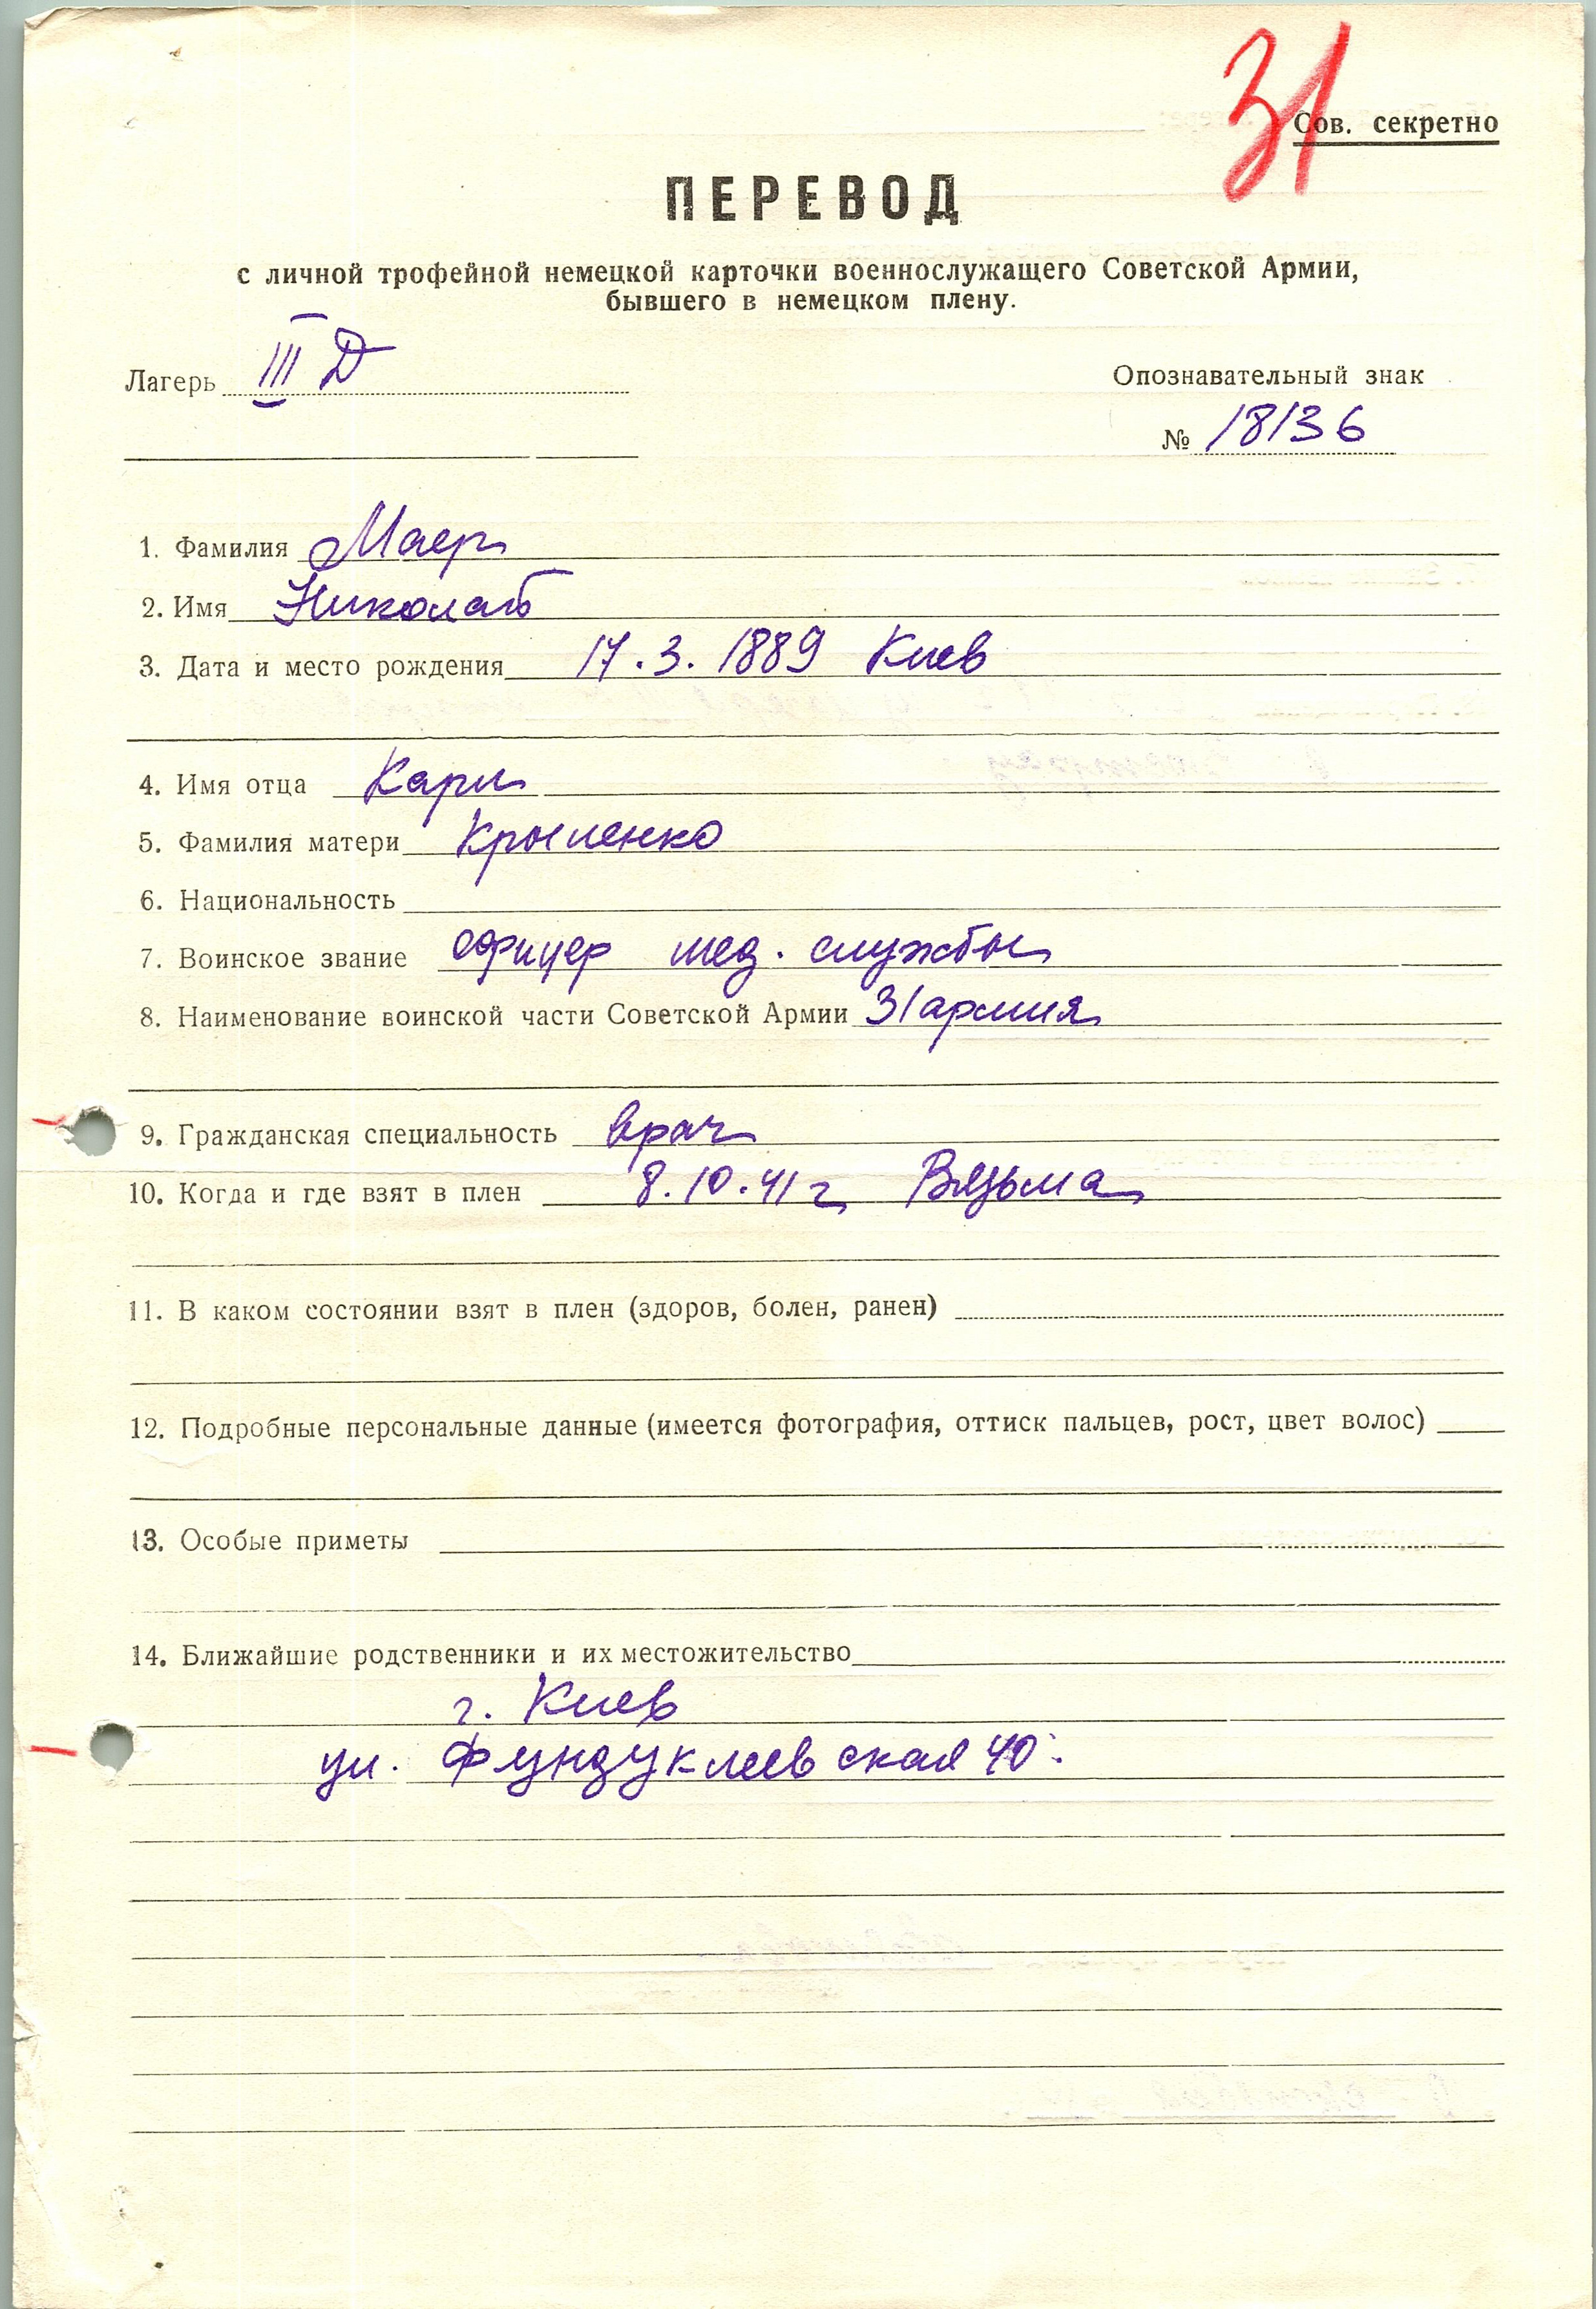 31
Сов. секретно
ПЕРЕВОД
с личной трофейной немецкой карточки военнослужащего Советской Армии,
бывшего в немецком плену.
Лагерь III Д
Опознавательный знак
№ 18136
1. Фамилия Маер
2. Имя Николай
3. Дата и место рождения 17.3.1889 Киев
4. Имя отца Карл
5. Фамилия матери Крыленко
6. Национальность
7. Воинское звание офицер мед. службы
8. Наименование воинской части Советской Армии 31 армия
9. Гражданская специальность врач
10. Когда и где взят в плен 8.10.41 г Вязьма
11. В каком состоянии взят в плен (здоров, болен, ранен)
12. Подробные персональные данные (имеется фотография, оттиск пальцев, рост, цвет волос)
13. Особые приметы
14. Ближайшие родственники и их местожительство
г. Киев
ул. Фундуклеевская 40.